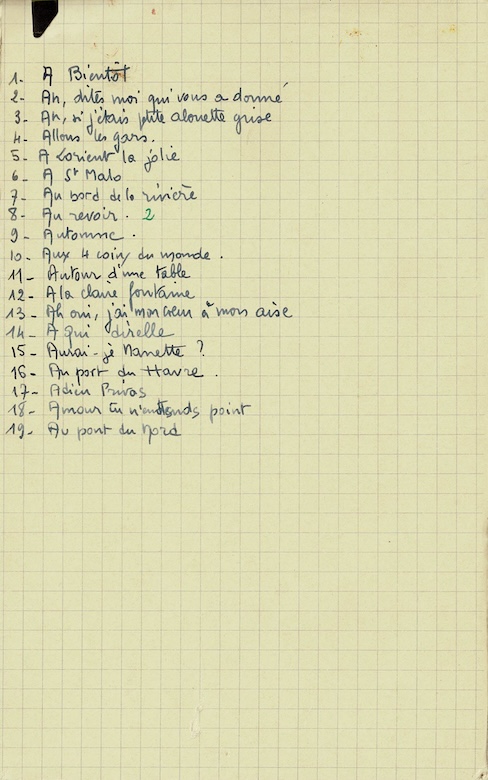 1- A Bientôt
2- Ah, dites moi qui vous a donné
3- Ah, si j'étais ptite alouette grise
4- Allons les gars.
5- A Lorient la jolie
6- A St Malo
7- Au bord de la rivière
8- Au revoir. 2
9- Automne.
10- Aux 4 coins du monde.
11- Autour d'une table
12- A la claire fontaine
13- Ah oui, j'ai mon cœur à mon aise
14- A qui direlle
15- Aurai-je Nanette ?
16- Au port du Havre.
17- Adieu Privas
18- Amour tu n'entends point
19- Au pont du Nord